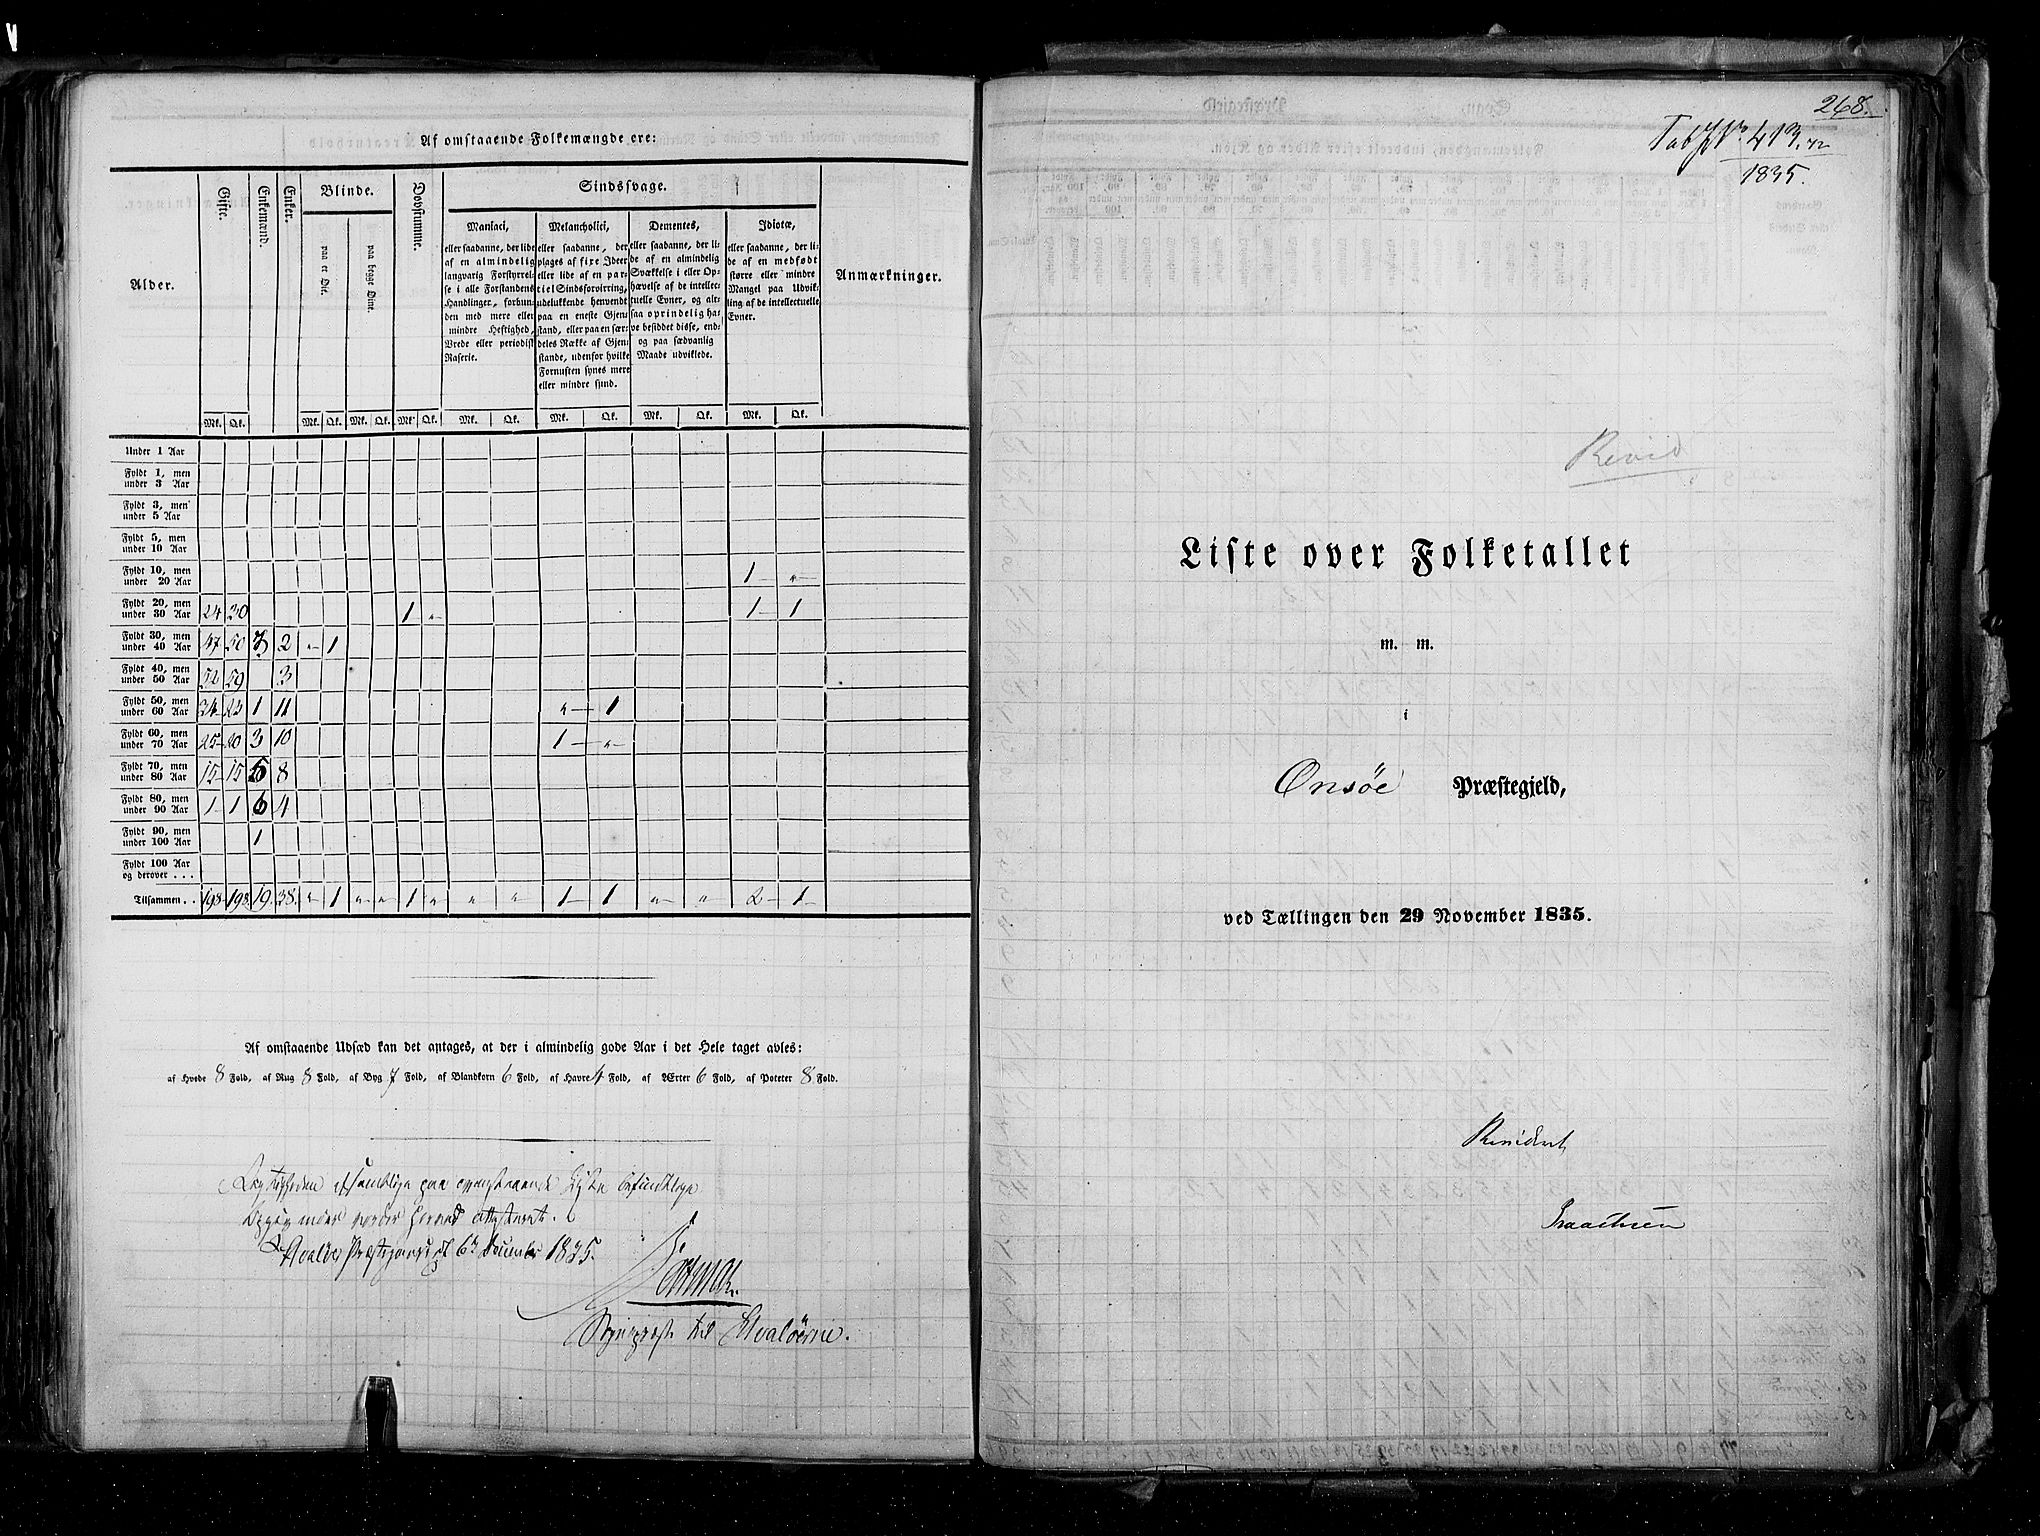 Af omstaaende Folkemængde ere:
Alder. Gifte. Enkemænd. Enker. Blinde. Dovstumme. Sindssvage. Anmærkninger.
paa et Øie. paa begge Øine.
Maniaci, Melancholici, Dementes, Idiotæ,
eller saadanne, der lide af en almindelig langvarig Forstyrrelse i alle Forstandens Handlinger, forbunden med mere eller mindre Heftighed, Vrede eller periodisk Raserie.
eller saadanne, der plages af fire Ideer eller lide af en partiel Sindsforvirring, udelukkende henvendt paa en eneste Gjenstand, eller paa en særdeles Række af Gjenstande, udenfor hvilke Fornuften synes mere eller mindre sund.
eller saadanne, der lide af en almindelig Svækkelse i eller Ophævelse af de intellectuelle Evner, og altsaa oprindelig have besiddet disse, endog paa sædvanlig Maade udviklede.
eller saadanne, der lide af en medfødt større eller mindre Mangel paa Udvikling af de intellectuelle Evner.
Mk. Qk. Mk. Qk. Mk. Qk. Mk. Qk. Mk. Qk. Mk. Qk. Mk. Qk. Mk. Qk.
Under 1 Aar
Fyldt 1, men under 3 Aar
Fyldt 3, men under 5 Aar
Fyldt 5, men under 10 Aar
Fyldt 10, men under 20 Aar 1 "
Fyldt 20, men under 30 Aar 24 30 1 " 1 1
Fyldt 30, men under 40 Aar 47 50 3 2 " 1
Fyldt 40, men under 50 Aar 52 59 3
Fyldt 50, men under 60 Aar 34 23 1 11 " 1
Fyldt 60, men under 70 Aar 25 20 3 10 1 "
Fyldt 70, men under 80 Aar 15 15 5 8
Fyldt 80, men under 90 Aar 1 1 6 4
Fyldt 90, men under 100 Aar 1
Fyldt 100 Aar og derover . . .
Tilsammen . . 198 198 19 38 " 1 " " 1 " " " 1 1 " " 2 1
Af omstaaende Udsæd kan det antages, at der i almindelig gode Aar i det Hele taget avles:
af Hvede 8 Fold, af Rug 8 Fold, af Byg 7 Fold, af Blandkorn 6 Fold, af Havre 4 Fold, af Ærter 6 Fold, af Poteter 8 Fold.
Rigtigheden af samtlige paa omstaaende Liste befindtlige
vorder herved attesteret.
Hvaløer Præstegaard d. 6te December 1835.
Sogneprest til Hvaløerne.
268.
Tab No 413
1835.
Revid
Liste over Folketallet
m. m.
i
Onsøe Præstegjeld,
ved Tællingen den 29 November 1835.
Revideret
Isaachsen